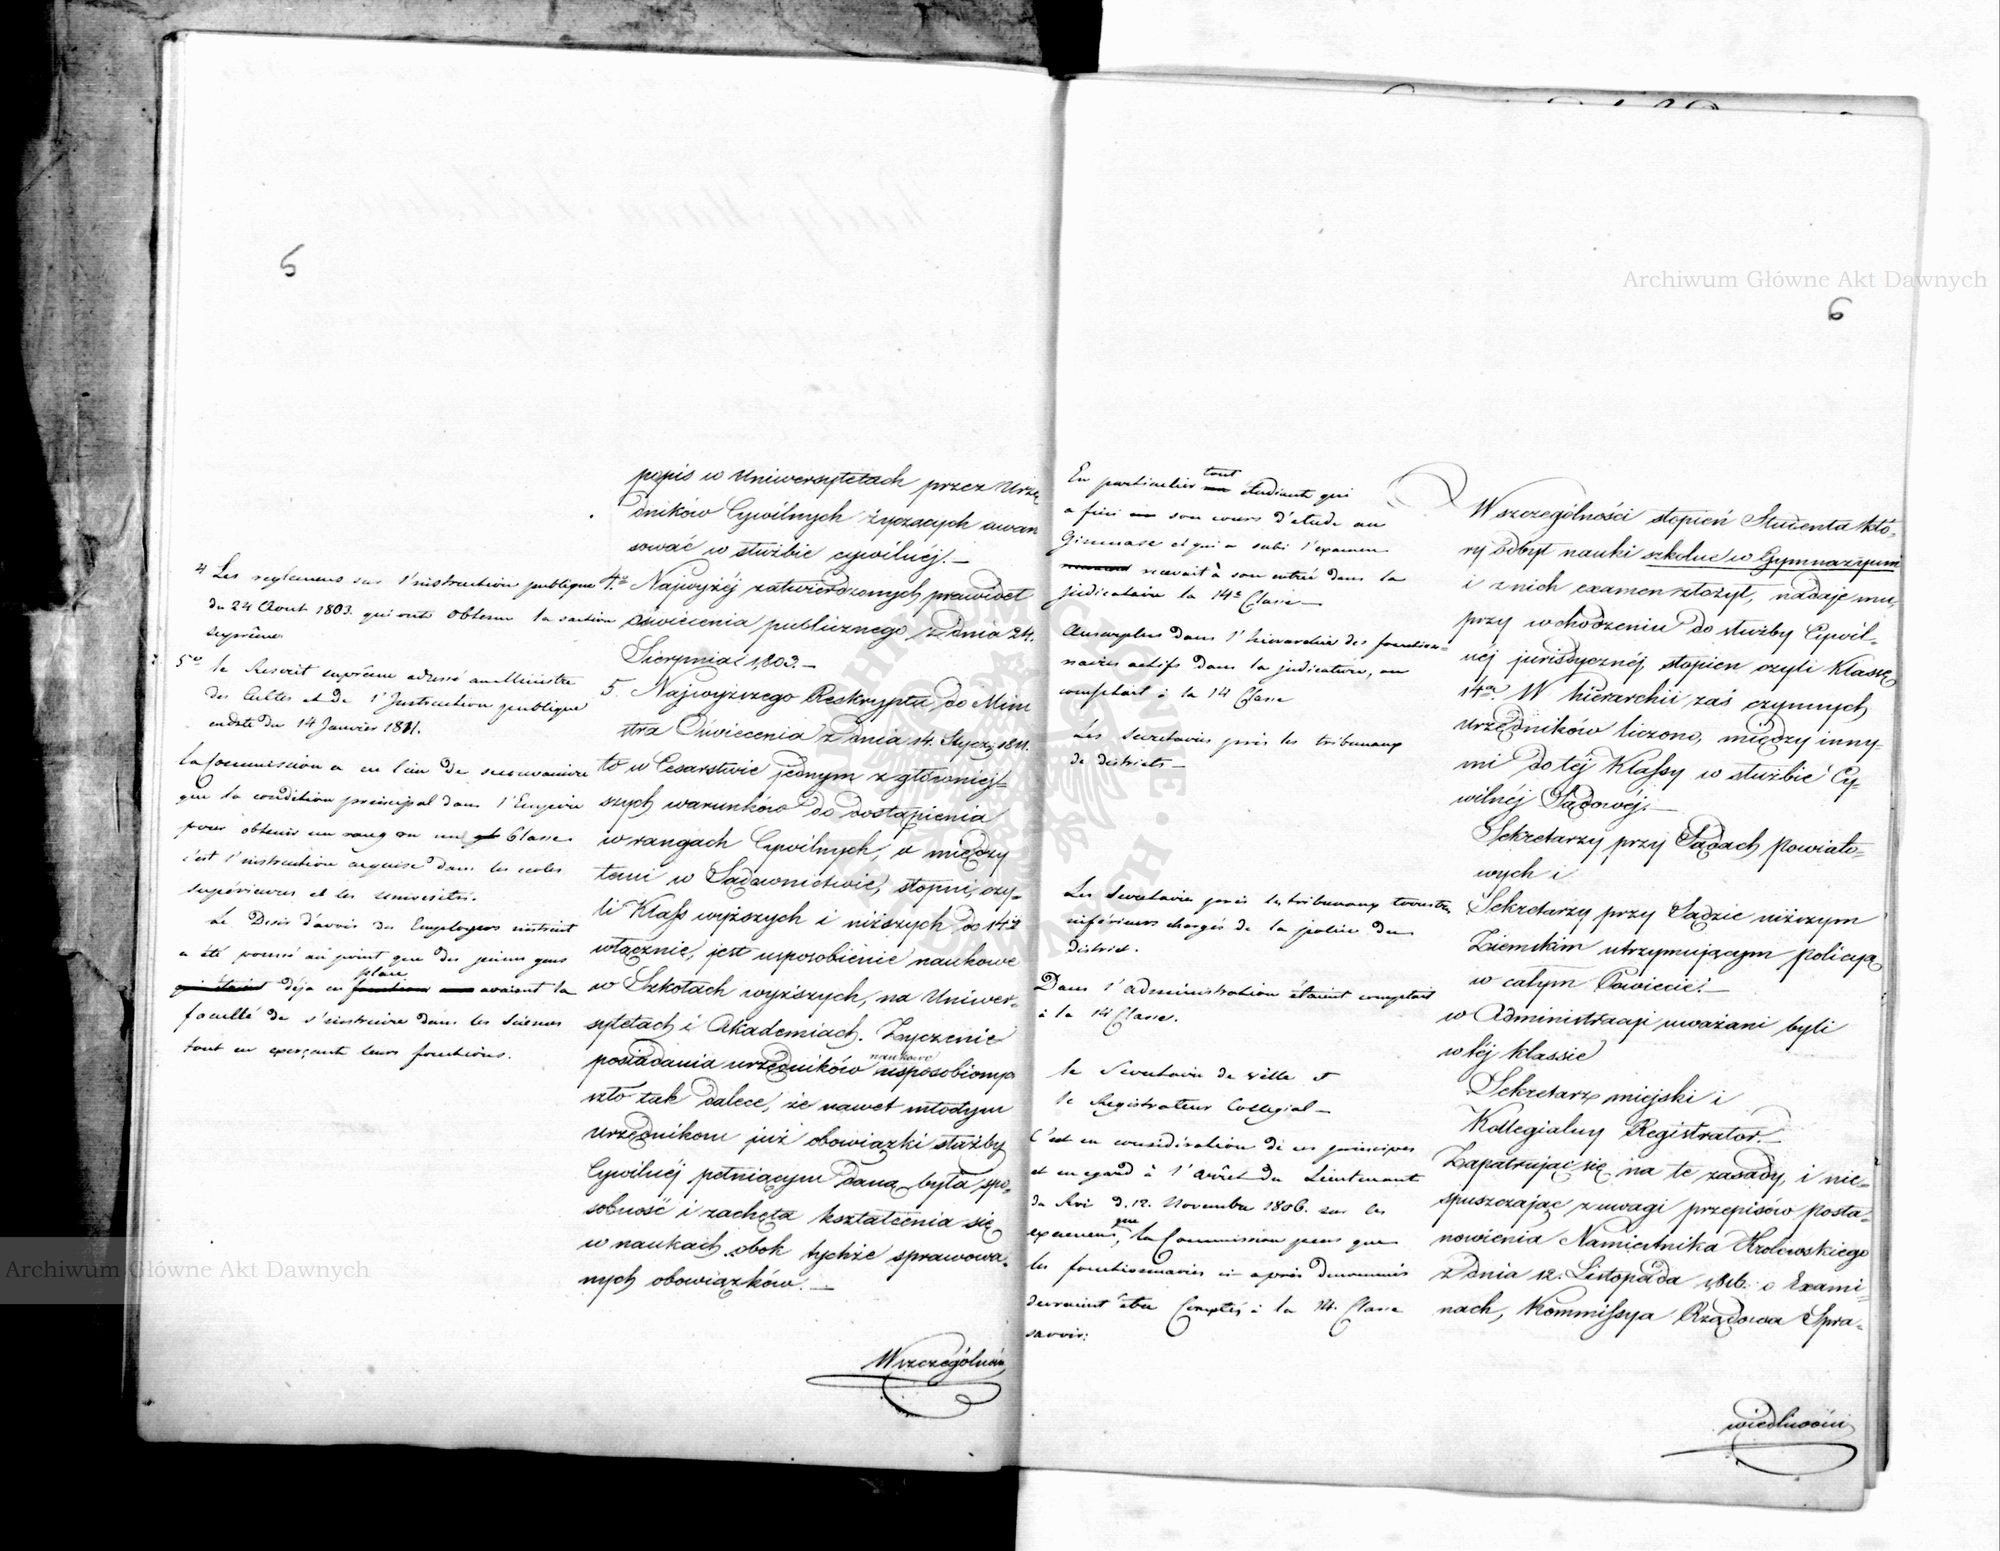 5
4 Les reglemens sur l'instruction publique
du 24 Aout 1803. qui ont obtenu la sanction
suprême
5º le Rescrit suprême adressé au Ministre
des Cultes et de l'Instruction publique
en date du 14 Janvier 1811.
La Commission a eu lieu de se convaincre
que la condition principal dans l'Empire
pour obtenir un rang ou une Classe
c'est l'instruction acquise dans les ecoles
supérieures et les universités.
Le Desir d'avoir des Employees instruit
a été poussé au point que des jeunes gens
place
déja en avaient la
faculté de s'instruire dans les Sciences
tout en exerçant leurs fonctions.
popis w Uniwersytetach przez Urzę
dników Cywilnych życzących awan
sować w służbie cywilnéj.—
4º Najwyżéj zatwierdzonych prawideł
oświecenia publicznego z dnia 24.
Sierpnia 1803.—
5. Najwyższego Reskryptu do Mini
stra Oświecenia z dnia 14. Stycz: 1811.
to w Cesarstwie jednym z główniej-
szych warunków do dostąpienia
w rangach Cywilnych, a między
temi w Sądownictwie, stopni, czy-
li Klass wyższych i niższych do 14ej
włącznie, jest usposobienie naukowe
w Szkołach wyższych, na Uniwer-
sytetach i Akademiach. Życzenie
naukowo
posiadania urzędników usposobionych
szło tak dalece, że nawet młodym
urzędnikom już obowiązki służby
Cywilnéj pełniącym daną była spo-
sobność i zachęta kształcenia się
w naukach obok tychże sprawowa-
nych obowiązków.—
Wszczególności
6
tout
En particulier étudiant qui
a fini son cours d'etude au
Gimnase et qui a subi l'examen
recevait à son entrée dans la
judicature la 14e Classe—
Aussi plus dans l'hierarchie des fonction-
naires actifs dans la judicature, on
comptait à la 14 Classe
Les Secretaires près les tribunaux
de districts—
Les Secretaires près les tribunaux terrestres
inférieurs chargés de la police du
district.
Dans l'administration étaient comptait
à la 14 Classe.
le Secretaire de ville et
le Registrateur Collegial—
C'est en considération de ces principes
et en egard à l'arrêt du Lieutenant
du Roi d. 12. Novembre 1816. sur les
que
examens, la Commission pens que
les fonctionnaires ci-après denommés
devraient être Comptés à la 14. Classe
savoir:
Wszczególności stopień Studenta któ-
ry odbył nauki szkolne w Gymnazyum
i z nich examen złożył, nadaje mu,
przy wchodzeniu do służby Cywil-
néj jurisdycznéj, stopień czyli Klassę
14ą. W hierarchii zaś czynnych
urzędników liczono, między inny-
mi do téj Klassy w służbie Cy-
wilnéj Sądowéj.—
Sekretarzy przy Sądach powiato-
wych i
Sekretarzy przy Sądzie niższym
Ziemskim utrzymującym policyą
w całym Powiecie.—
w Administracyi uważani byli
w téj klassie
Sekretarz miejski i
Kollegialny Registrator.—
Zapatrując się na te zasady, i nie-
spuszczając z uwagi przepisów Posta-
nowienia Namiestnika Królewskiego
z dnia 12. Listopada 1816. o Exami-
nach, Kommissya Rządowa Spra-
wiedliwości
Archiwum Główne Akt Dawnych
Archiwum Główne Akt Dawnych